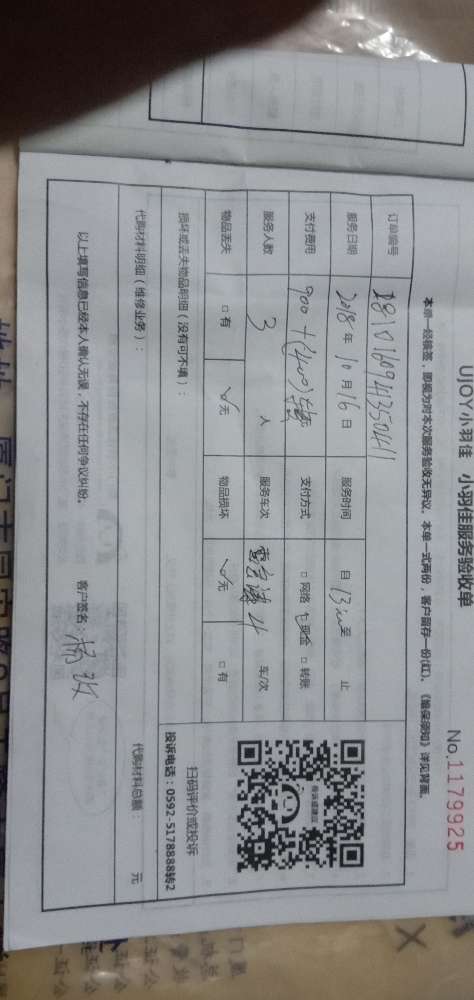 UJOY小羽佳 小羽佳服务验收单
No.1179925
本单一经检签，即视为对本次服务验收无异议。本单一式两份，客户留存一份(红)。《维保须知》详见背面。
订单编号
服务日期 2018年10月16日 服务时间 自13 至 止
支付费用 900+(400) 支付方式 □网络 ☑现金 □转账
服务人数 3 人 服务车次 车/次
物品丢失 □有 ☑无 物品损坏 ☑无 □有
损坏或丢失物品明细（没有可不填）：
扫码评价或投诉
投诉电话：0592-5178888转2
投诉或建议
代购材料明细（维修业务）： 代购材料总额： 元
以上填写信息已经本人确认无误，不存在任何争议纠纷。 客户签名：杨玫